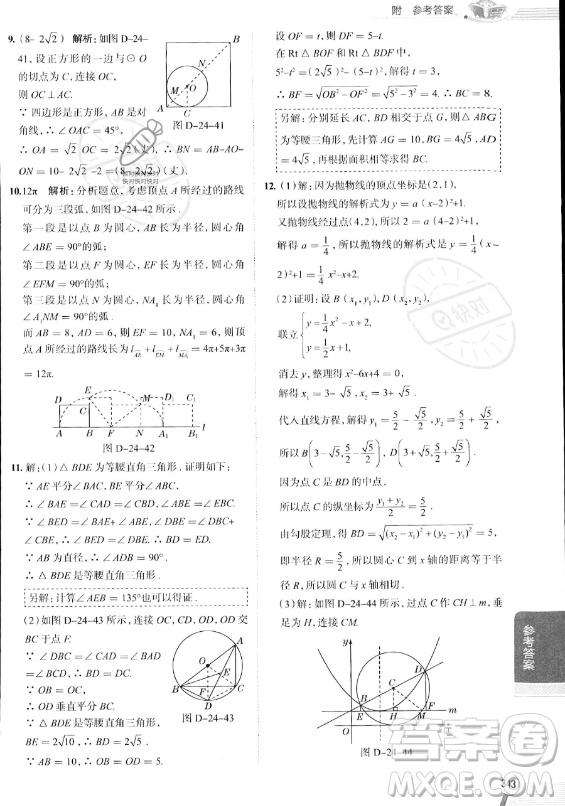 附 参考答案
9. (8-2√2) 解析:如图 D-24-
41,设正方形的一边与⊙O
的切点为 C,连接 OC,
则 OC⊥AC.
∵ 四边形是正方形,AB 是对
角线,∴∠OAC=45°.
∴ OA = √2 OC = 2√2 . ∴ AB-AO-
ON = 10-2√2-2 = (8-2√2)(丈).
A B C M O N
图 D-24-41
10. 12π 解析:分析题意,考虑顶点 A 所经过的路线
可分为三段弧,如图 D-24-42 所示.
第一段是以点 B 为圆心,AB 长为半径,圆心角
∠ABE=90°的弧;
第二段是以点 F 为圆心,EF 长为半径,圆心角
∠EFM=90°的弧;
第三段是以点 N 为圆心,NA₁ 长为半径,圆心角
∠A₁NM=90°的弧.
而 AB=8, EF=10, NA₁=6,
∴ 点 A 所经过的路线长为 l AE + l EM + l MA₁ =4π+5π+3π
=12π.
E M D₁ C₁
A B F N A₁ B₁ l
图 D-24-42
11. 解:(1)△BDE 为等腰直角三角形. 证明如下:
∵ AE 平分∠BAC, BE 平分∠ABC,
∴ ∠BAE=∠CAD,∠ABE=∠EBC.
∵ ∠BED=∠BAE+∠ABE,∠DBE=∠DBC+
∠CBE,∠DBC=∠CAD,∴ ∠BED=∠DBE.
∵ AB 为直径,∴ ∠ADB=90°.
∴ △BDE 是等腰直角三角形.
另解:计算∠AEB=135°也可以得证.
(2)如图 D-24-43 所示,连接 OC,CD,OD,OD 交
BC 于点 F.
∵ ∠DBC=∠CAD=∠BAD
=∠BCD,
∴ BD=DC.
∵ OB=OC,
∴ OD 垂直平分 BC.
∵ △BDE 是等腰直角三角形,
BE=2√10, ∴ BD=2√5.
∵ AB=10,∴ OB=OD=5.
A O E B F C D
图 D-24-43
设 OF=t,则 DF=5-t.
在 Rt△BOF 和 Rt△BDF 中,
5²-t²=(2√5)²-(5-t)²,解得 t=3,
∴ BF=√(OB²-OF²)=√(5²-3²)=4. ∴ BC=8.
另解:分别延长 AC, BD 相交于点 G,则△ABG
为等腰三角形,先计算 AG=10, BG=4√5,
AD=4√5,再根据面积相等求得 BC.
12. (1)解:因为抛物线的顶点坐标是(2,1),
所以设抛物线的解析式为 y=a(x-2)²+1.
又抛物线经过点(4,2),所以 2=a(4-2)²+1,
解得 a=1/4,所以抛物线的解析式是 y=1/4(x-
2)²+1=1/4x²-x+2.
(2)证明:设 B(x₁,y₁),D(x₂,y₂),
联立{y=1/4x²-x+2, y=1/2x+1/2,
消去 y,整理得 x²-6x+4=0,
解得 x₁=3-√5, x₂=3+√5.
代入直线方程,解得 y₁=5/2-√5/2, y₂=5/2+√5/2,
所以 B(3-√5, 5/2-√5/2), D(3+√5, 5/2+√5/2).
因为点 C 是 BD 的中点,
所以点 C 的纵坐标为 (y₁+y₂)/2=5/2.
由勾股定理,得 BD=√((x₂-x₁)²+(y₂-y₁)²)=5,
即半径 R=5/2,即圆心 C 到 x 轴的距离等于半径
R,所以⊙C 与 x 轴相切.
(3)解:如图 D-24-44 所示,过点 C 作 CH⊥m,
垂足为 H,连接 CM.
y D C B E H M m O F x
图 D-24-44
参考答案
343
快对
答案圈
MXQE.COM